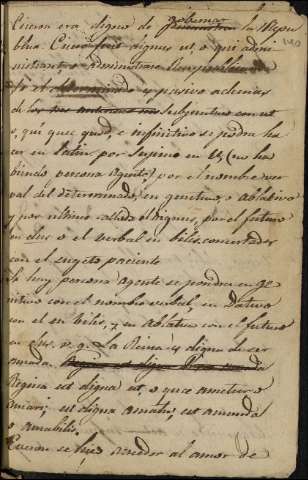 Ciceron era digno de gobernar la Repu
blica. Cicero fuit dignus ut, o qui admi
nistraret
y pasivo ademas
de los subjuntivo con ut
o, qui, quæ, quod, e infinitivo se podra ha
cer en latin por supino en u, (no ha
biendo persona agente) por el nombre ver
val del determinado, en genitivo, o ablativo
y por ultimo callado el dignus, por el futuro
en dus o el verbal en bilis, concertados
con el sugeto paciente
Si huy persona agente se pondra en ge
nitivo con el nombre verbal, en dativo
con el en bilis, y en ablativo con el futuro
en dus. v. g. La Reina es digna de ser
amada.
Regina est digna ut, o quæ ametur o
amari; est digna amatu, est amanda
o amabilis.
Ciceron se hizo acreedor al amor de